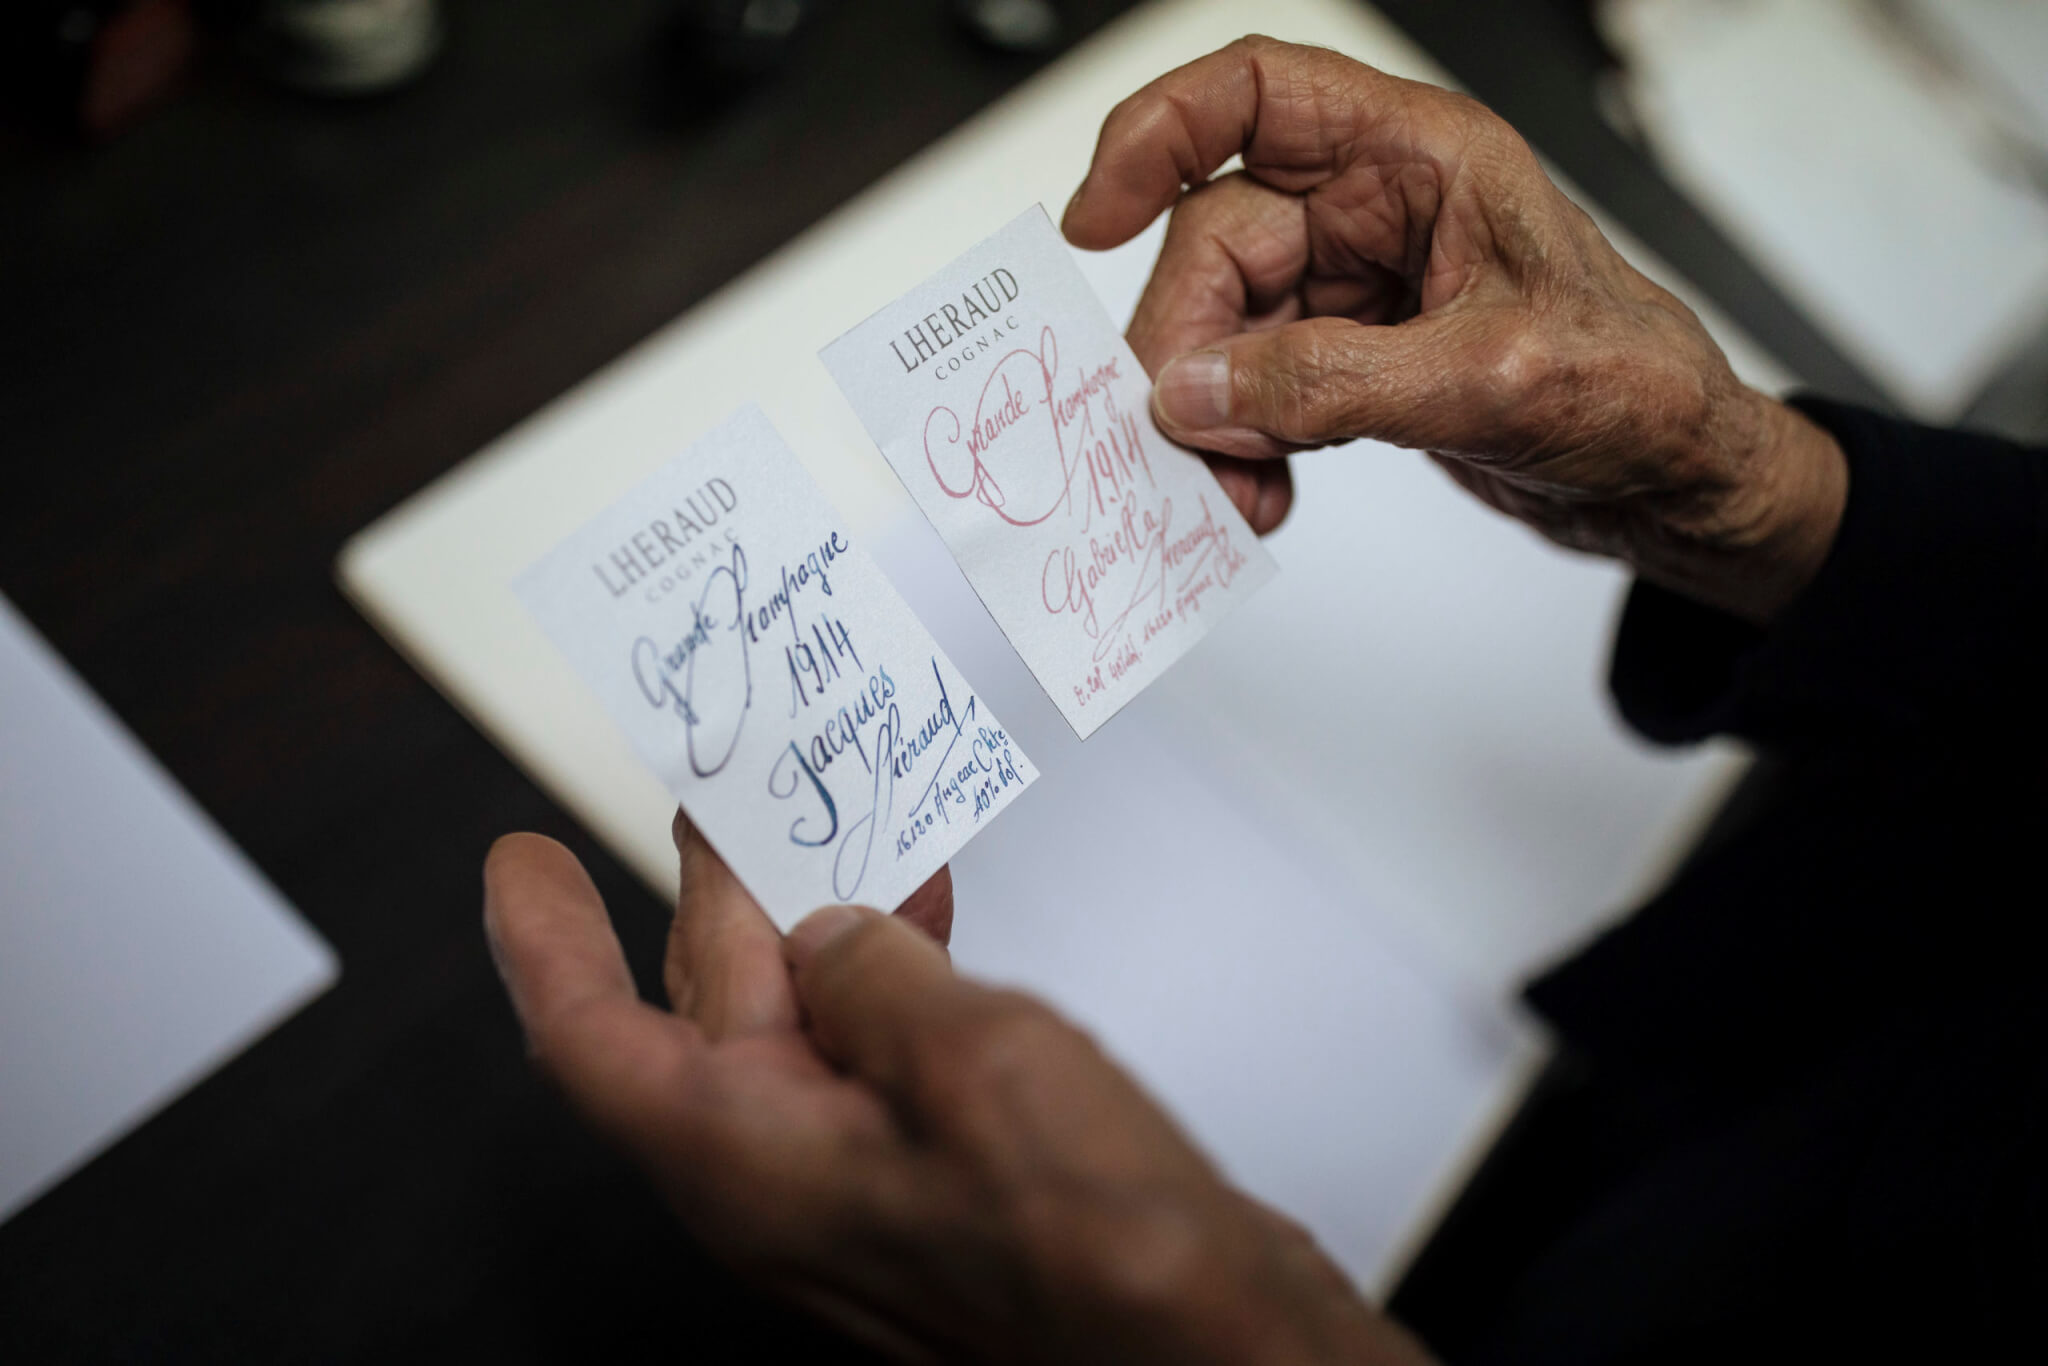 LHERAUD
COGNAC
Grande Champagne
1914
Jacques
Lhéraud
16120 Angeac Chte
40% Vol.
LHERAUD
COGNAC
Grande Champagne
1914
Gabriella
Lheraud
16120 Angeac Chte